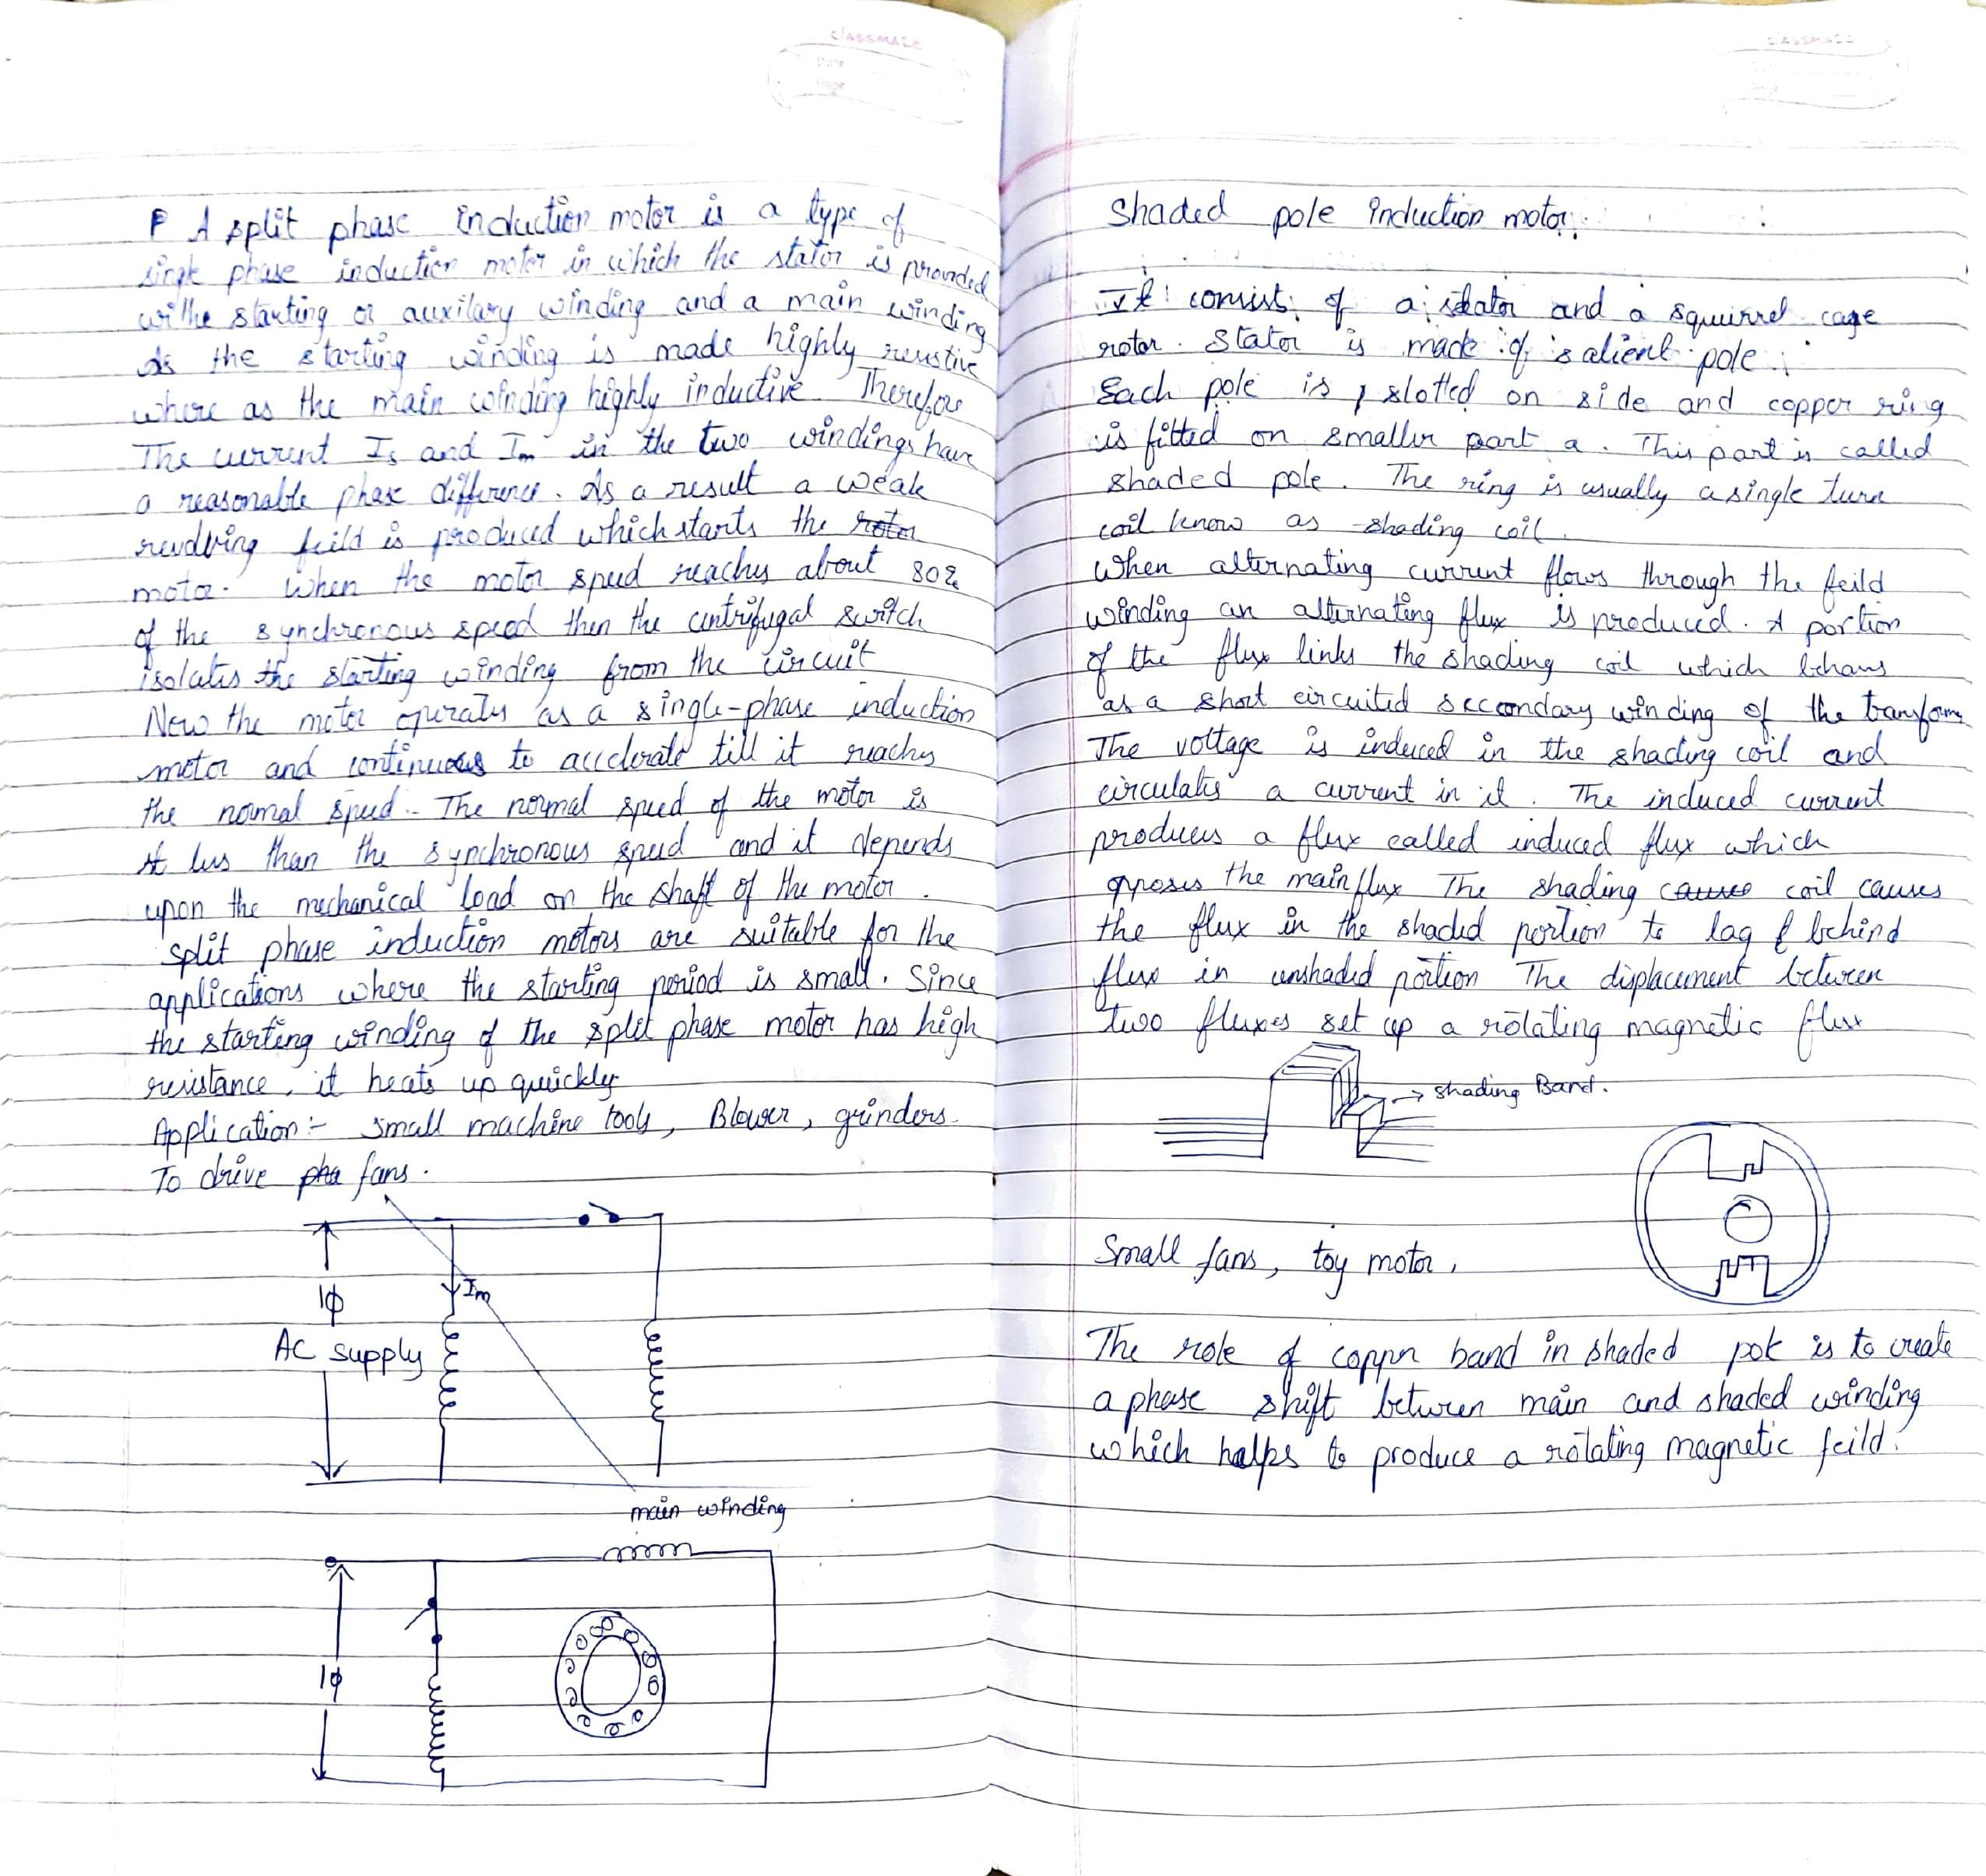 classmate
Date
Page
A split phase induction motor is a type of
single phase induction motor in which the stator is provided
withe starting or auxilary winding and a main winding
As the starting winding is made highly resistive
where as the main winding highly inductive. Therefore
The current Is and Im in the two windings have
a reasonable phase difference. As a result a weak
revolving feild is produced which starts the rotor
motor. When the motor speed reaches about 80%
of the synchronous speed then the centrifugal switch
isolates the starting winding from the circuit
Now the motor operates as a single-phase induction
motor and continues to acclerate till it reaches
the normal speed. The normal speed of the motor is
less than the synchronous speed and it depends
upon the mechanical load on the shaft of the motor.
split phase induction motors are suitable for the
applications where the starting period is small. Since
the starting winding of the split phase motor has high
resistance, it heats up quickly
Application:- Small machine tools, Blower, grinders.
To drive pha fans.
Im
1φ
AC supply
main winding
1φ
classmate
Shaded pole induction motor.
It consists of a stator and a squirrel cage
rotor. Stator is made of salient pole.
Each pole is slotted on side and copper ring
is fitted on smaller part a. This part is called
shaded pole. The ring is usually a single turn
coil know as shading coil.
When alternating current flows through the feild
winding an alternating flux is produced. A portion
of the flux links the shading coil which behaves
as a short circuited secondary winding of the transforme
The voltage is induced in the shading coil and
circulates a current in it. The induced current
produces a flux called induced flux which
opposes the main flux The shading cause coil causes
the flux in the shaded portion to lag behind
flux in unshaded portion The displacement between
two fluxes set up a rotating magnetic flux
→ shading Band.
Small fans, toy motor,
The role of copper band in shaded pole is to create
a phase shift between main and shaded winding
which helps to produce a rotating magnetic feild.